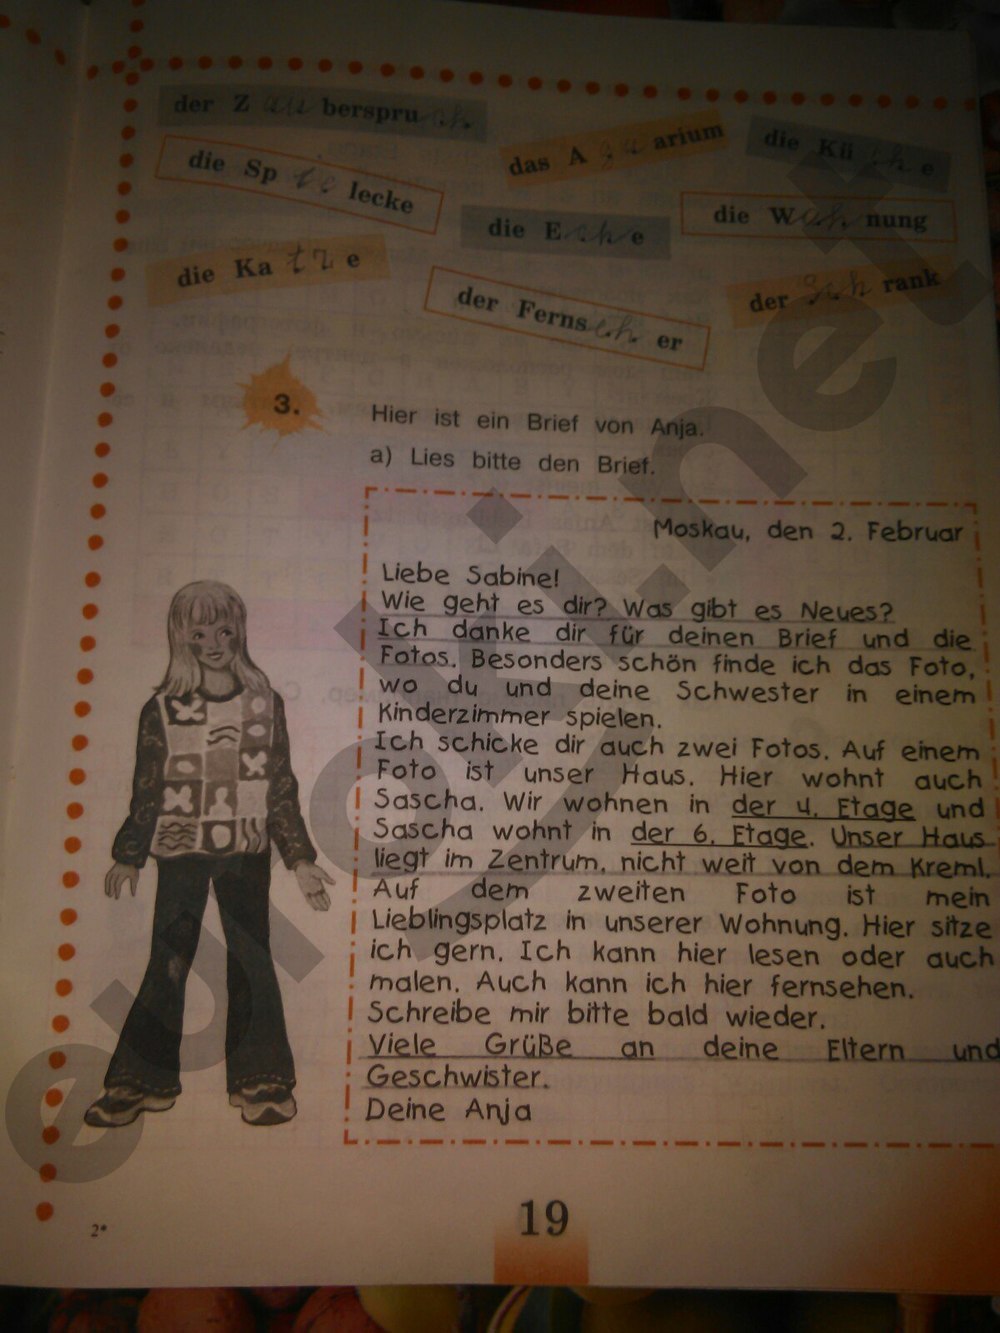 der Zauberspruch
das Aquarium
die Küche
die Sp lecke
die Eche
die Wohnung
die Katze
der Fernseher
der Schrank
3.
Hier ist ein Brief von Anja.
a) Lies bitte den Brief.
Moskau, den 2. Februar
Liebe Sabine!
Wie geht es dir? Was gibt es Neues?
Ich danke dir für deinen Brief und die
Fotos. Besonders schön finde ich das Foto,
wo du und deine Schwester in einem
Kinderzimmer spielen.
Ich schicke dir auch zwei Fotos. Auf einem
Foto ist unser Haus. Hier wohnt auch
Sascha. Wir wohnen in der 4. Etage und
Sascha wohnt in der 6. Etage. Unser Haus
liegt im Zentrum, nicht weit von dem Kreml.
Auf dem zweiten Foto ist mein
Lieblingsplatz in unserer Wohnung. Hier sitze
ich gern. Ich kann hier lesen oder auch
malen. Auch kann ich hier fernsehen.
Schreibe mir bitte bald wieder.
Viele Grüße an deine Eltern und
Geschwister.
Deine Anja
2*
19
euroki.net